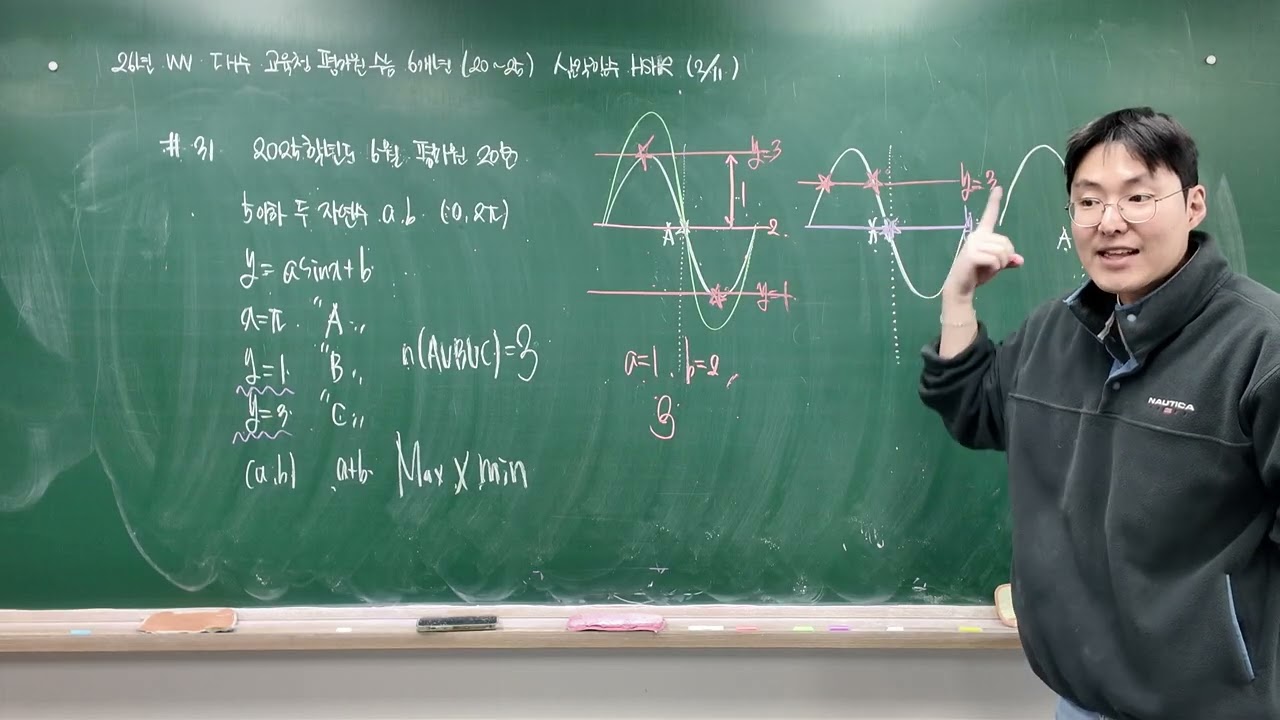 26년 VV 대수 교육청 평가원 수능 6개년 (20~25) 삼각함수 (2/11)
#31 2025학년도 6월 평가원 20번
5이하 두 자연수 a, b (0, 2π)
y=a sinx+b
x=π "A"
y=1 "B"
y=3 "C"
n(A∪B∪C)=3
(a,b) a+b Max × min
y=3
1
A
2
y=1
a=1, b=2,
3
y=3
A
A
NAUTICA